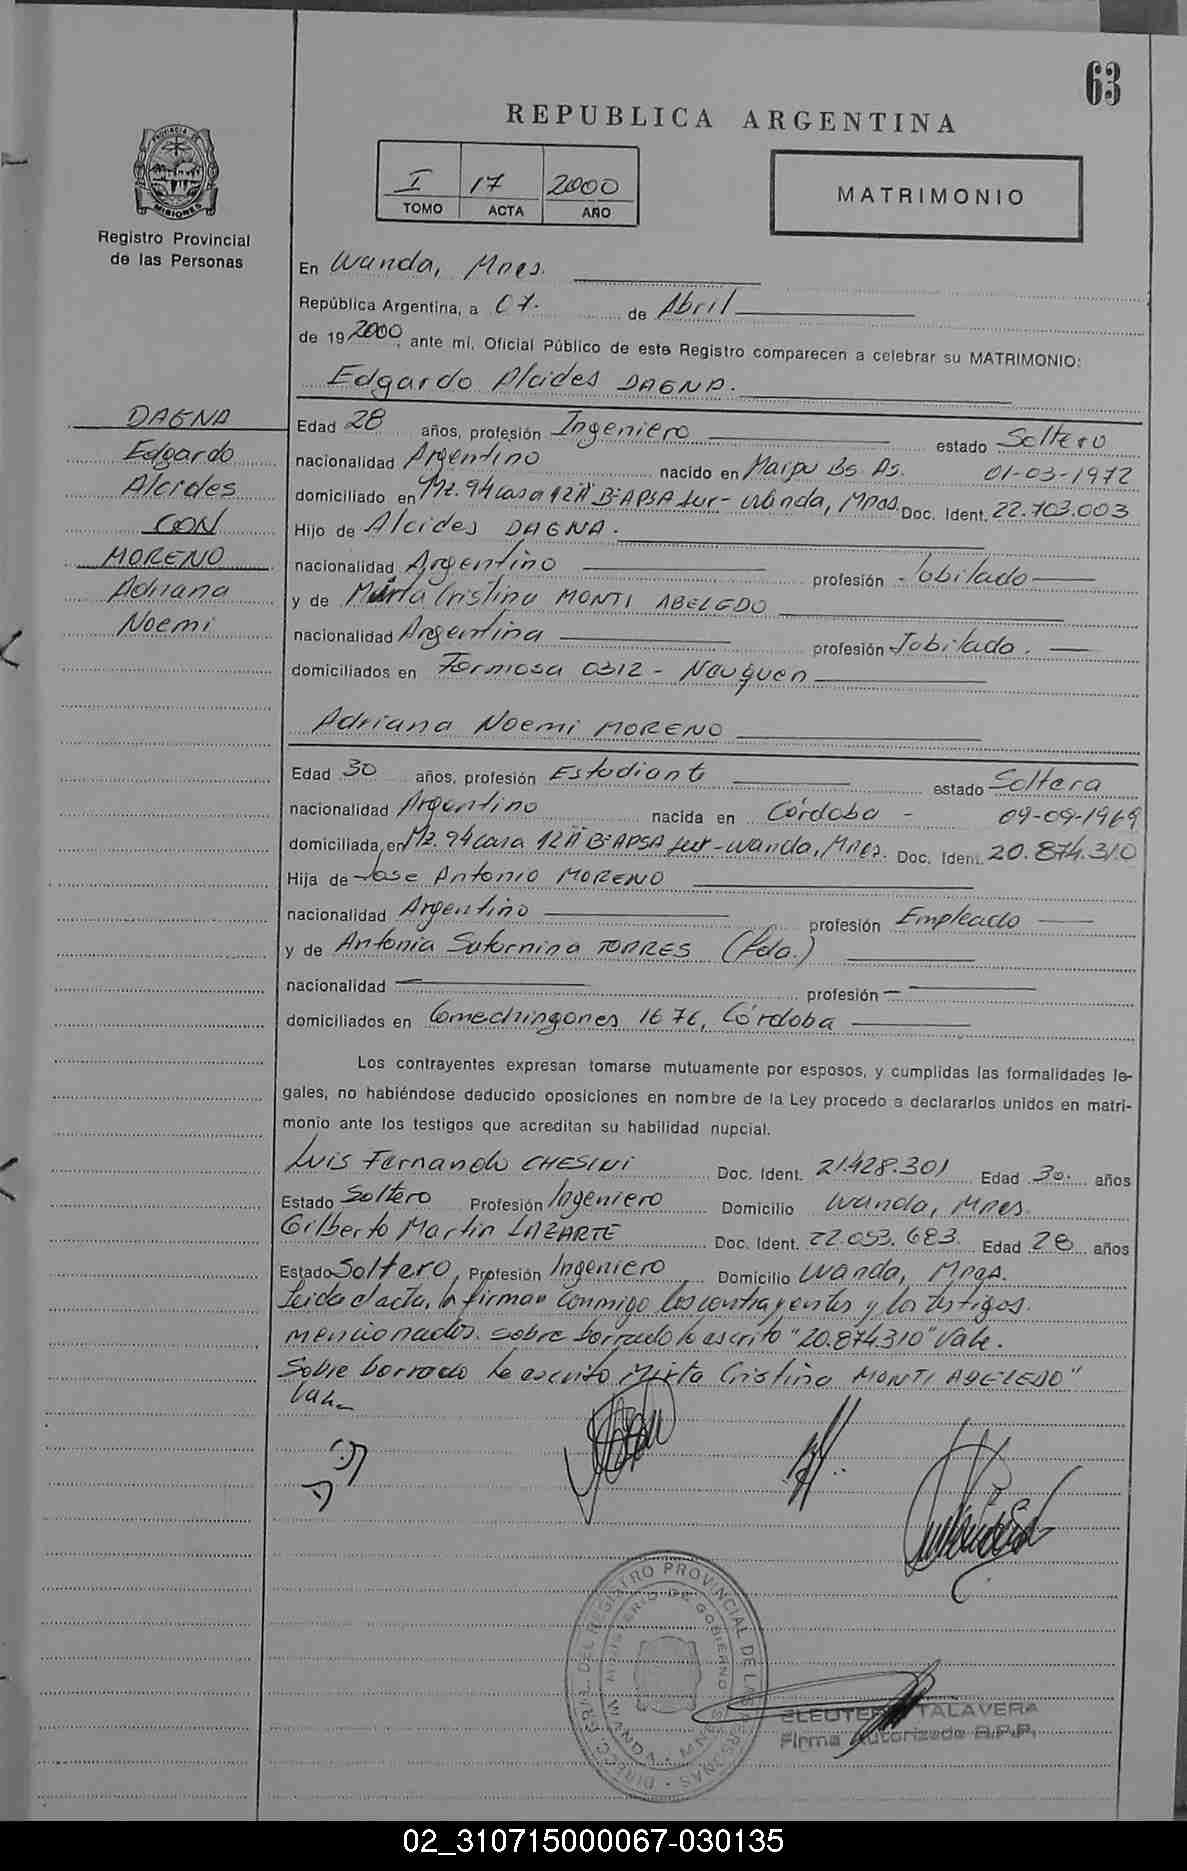 63
REPUBLICA ARGENTINA
PROVINCIA DE
MISIONES
I 17 2000
TOMO ACTA AÑO
MATRIMONIO
Registro Provincial
de las Personas
En Wanda, Mnes.
República Argentina, a 07. de Abril
de 19 2000, ante mí, Oficial Público de este Registro comparecen a celebrar su MATRIMONIO:
Edgardo Alcides DAGNA.
DAGNA
Edgardo
Alcides
CON
MORENO
Adriana
Noemi
Edad 28 años, profesión Ingeniero estado Soltero
nacionalidad Argentino nacido en Maipu Bs. As. 01-03-1972
domiciliado en Mz. 94 casa 12A B° APSA Sur - Wanda, Mnes. Doc. Ident. 22.703.003
Hijo de Alcides DAGNA.
nacionalidad Argentino profesión Jubilado
y de Mirta Cristina MONTI ABELEDO
nacionalidad Argentina profesión Jubilada.
domiciliados en Formosa 0312 - Neuquen
Adriana Noemi MORENO
Edad 30 años, profesión Estudiante estado Soltera
nacionalidad Argentino nacida en Córdoba - 09-09-1969
domiciliada en Mz. 94 casa 12A B° APSA Sur - Wanda, Mnes. Doc. Iden. 20.874.310
Hija de Jose Antonio MORENO
nacionalidad Argentino profesión Empleado
y de Antonia Saturnina TORRES (fda.)
nacionalidad profesión
domiciliados en Comechingones 1676, Córdoba
Los contrayentes expresan tomarse mutuamente por esposos, y cumplidas las formalidades le-
gales, no habiéndose deducido oposiciones en nombre de la Ley procedo a declararlos unidos en matri-
monio ante los testigos que acreditan su habilidad nupcial.
Luis Fernando CHESINI Doc. Ident. 21.428.301 Edad 30. años
Estado Soltero Profesión Ingeniero Domicilio Wanda, Mnes.
Gilberto Martin LAZARTE Doc. Ident. 22.053.683. Edad 28 años
Estado Soltero, Profesión Ingeniero Domicilio Wanda, Mnes.
Leida el acta, la firman conmigo los contrayentes y los testigos
mencionados. sobre borrado lo escrito "20.874.310" Vale.
Sobre borrado lo escrito Mirta Cristina MONTI ABELEDO"
Vale
DIRECC. PRV. DEL REGISTRO PROVINCIAL DE LAS PERSONAS
MINISTERIO DE GOBIERNO
WANDA
TALAVERA
Firma Autorizada R.P.P.
02_310715000067-030135